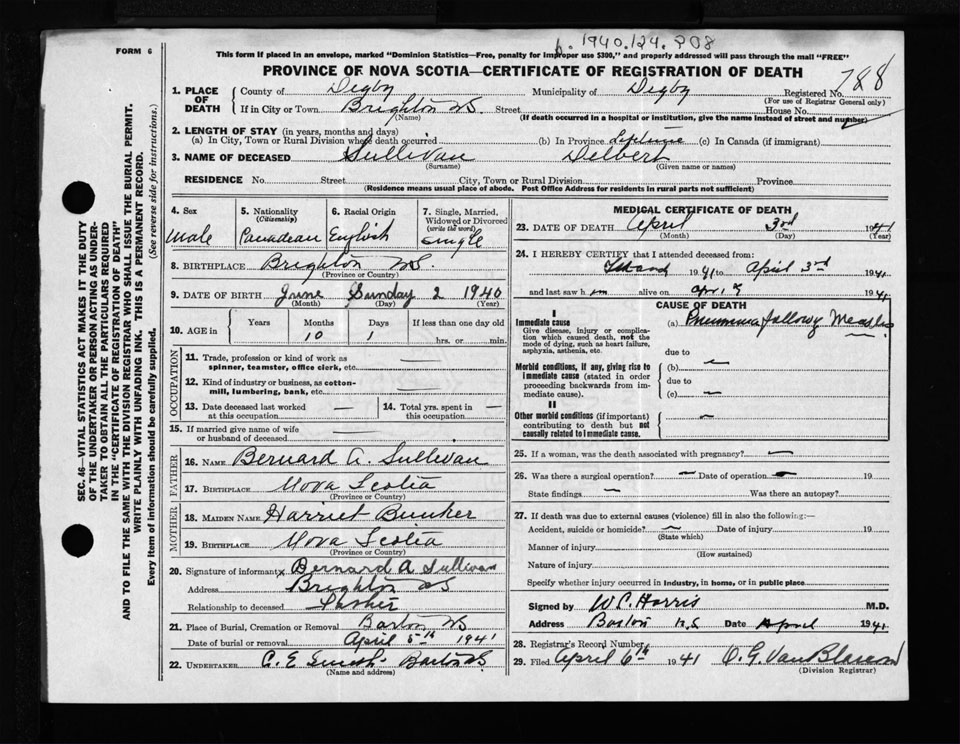 b. 1940.124.908
FORM 6
This form if placed in an envelope, marked "Dominion Statistics—Free, penalty for improper use $300," and properly addressed will pass through the mail "FREE"
PROVINCE OF NOVA SCOTIA—CERTIFICATE OF REGISTRATION OF DEATH
788
SEC. 46—VITAL STATISTICS ACT MAKES IT THE DUTY
OF THE UNDERTAKER OR PERSON ACTING AS UNDER-
TAKER TO OBTAIN ALL THE PARTICULARS REQUIRED
IN THE "CERTIFICATE OF REGISTRATION OF DEATH"
AND TO FILE THE SAME WITH THE DIVISION REGISTRAR WHO SHALL ISSUE THE BURIAL PERMIT.
WRITE PLAINLY WITH UNFADING INK. THIS IS A PERMANENT RECORD.
Every item of information should be carefully supplied. (See reverse side for instructions.)
1. PLACE OF DEATH
County of Digby Municipality of Digby Registered No.
(For use of Registrar General only)
If in City or Town Brighton NS Street House No.
(Name) (If death occurred in a hospital or institution, give the name instead of street and number)
2. LENGTH OF STAY (in years, months and days)
(a) In City, Town or Rural Division where death occurred (b) In Province Lifetime (c) In Canada (if immigrant)
3. NAME OF DECEASED Sullivan Delbert
(Surname) (Given name or names)
RESIDENCE No. Street City, Town or Rural Division Province
(Residence means usual place of abode. Post Office Address for residents in rural parts not sufficient)
4. Sex
Male
5. Nationality (Citizenship)
Canadean
6. Racial Origin
English
7. Single, Married, Widowed or Divorced (write the word)
single
8. BIRTHPLACE Brighton NS.
(Province or Country)
9. DATE OF BIRTH June Sunday 2 1940
(Month) (Day) (Year)
10. AGE in Years Months Days If less than one day old
10 1 hrs. or min.
OCCUPATION
11. Trade, profession or kind of work as spinner, teamster, office clerk, etc. —
12. Kind of industry or business, as cotton-mill, lumbering, bank, etc. —
13. Date deceased last worked at this occupation —
14. Total yrs. spent in this occupation —
15. If married give name of wife or husband of deceased
FATHER
16. NAME Bernard A. Sullivan
17. BIRTHPLACE Nova Scotia
(Province or Country)
MOTHER
18. MAIDEN NAME Harriet Bunker
19. BIRTHPLACE Nova Scotia
(Province or Country)
20. Signature of informant x Bernard A Sullivan
Address Brighton NS
Relationship to deceased Father
21. Place of Burial, Cremation or Removal Barton NS
Date of burial or removal April 5th 1941
22. UNDERTAKER C. E. Smith Barton NS
(Name and address)
MEDICAL CERTIFICATE OF DEATH
23. DATE OF DEATH April 3rd 1941
(Month) (Day) (Year)
24. I HEREBY CERTIFY that I attended deceased from:
1941 to April 3rd 1941
and last saw him alive on Apr. 1941
CAUSE OF DEATH
I
Immediate cause
Give disease, injury or complication which caused death, not the mode of dying, such as heart failure, asphyxia, asthenia, etc.
(a) Pneumonia following Measles
due to
Morbid conditions, if any, giving rise to immediate cause (stated in order proceeding backwards from immediate cause).
(b) —
due to
(c) —
II
Other morbid conditions (if important) contributing to death but not causally related to immediate cause. —
25. If a woman, was the death associated with pregnancy? —
26. Was there a surgical operation? — Date of operation — 19
State findings — Was there an autopsy?
27. If death was due to external causes (violence) fill in also the following:—
Accident, suicide or homicide? — Date of injury 19
(State which)
Manner of injury
(How sustained)
Nature of injury
Specify whether injury occurred in industry, in home, or in public place
Signed by W.C. Harris M.D.
Address Barton N.S. Date April 1941
28. Registrar's Record Number
29. Filed April 6th 1941 O. G. Van
(Division Registrar)